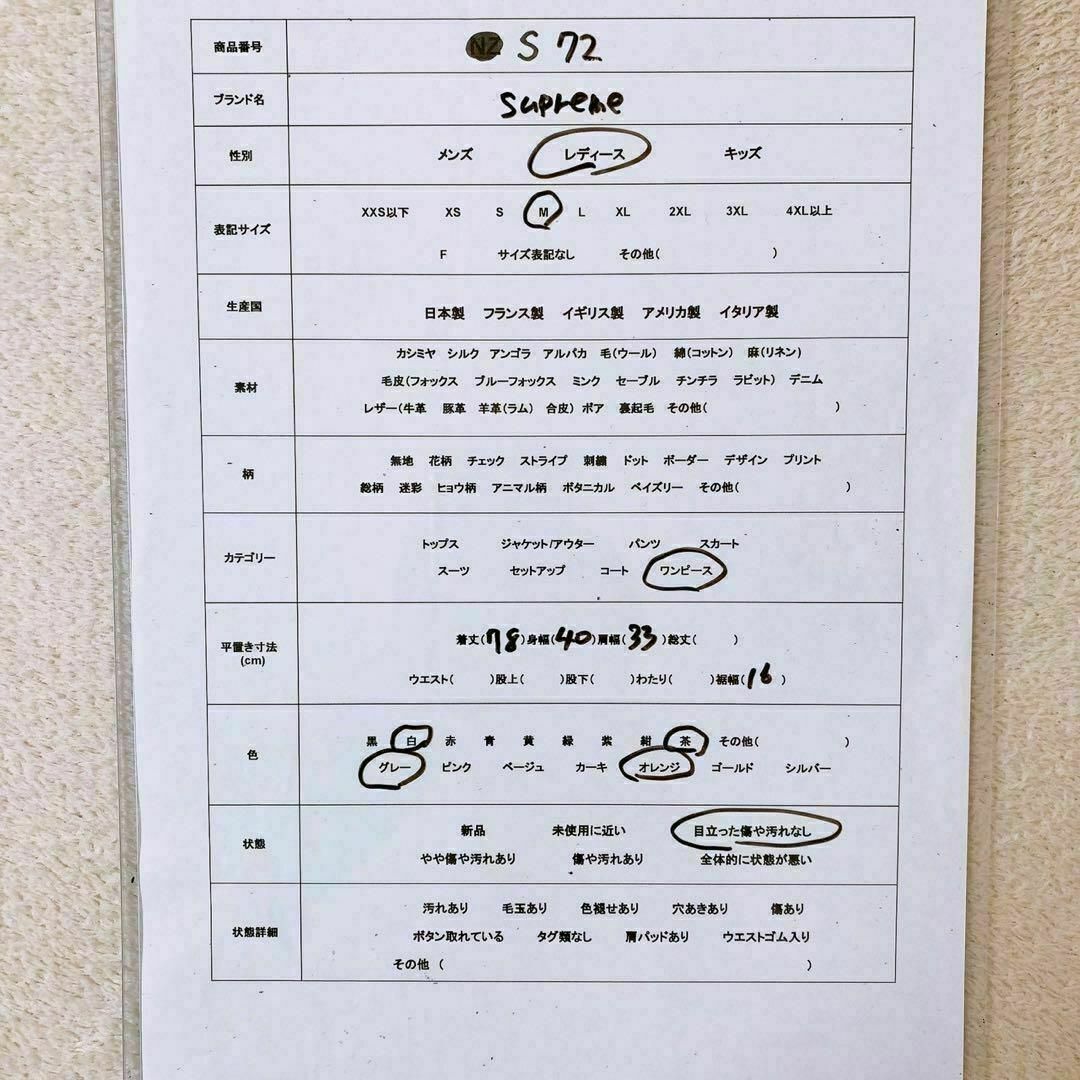 商品番号 NZ S 72
ブランド名 Supreme
性別 メンズ レディース キッズ
XXS以下 XS S M L XL 2XL 3XL 4XL以上
表記サイズ
F サイズ表記なし その他( )
生産国 日本製 フランス製 イギリス製 アメリカ製 イタリア製
カシミヤ シルク アンゴラ アルパカ 毛(ウール) 綿(コットン) 麻(リネン)
素材 毛皮(フォックス ブルーフォックス ミンク セーブル チンチラ ラビット) デニム
レザー(牛革 豚革 羊革(ラム) 合皮) ボア 裏起毛 その他( )
無地 花柄 チェック ストライプ 刺繍 ドット ボーダー デザイン プリント
柄
総柄 迷彩 ヒョウ柄 アニマル柄 ボタニカル ペイズリー その他( )
トップス ジャケット/アウター パンツ スカート
カテゴリー
スーツ セットアップ コート ワンピース
平置き寸法 着丈(78)身幅(40)肩幅(33)総丈( )
(cm)
ウエスト( )股上( )股下( )わたり( )裾幅(16)
黒 白 赤 青 黄 緑 紫 紺 茶 その他( )
色
グレー ピンク ベージュ カーキ オレンジ ゴールド シルバー
新品 未使用に近い 目立った傷や汚れなし
状態
やや傷や汚れあり 傷や汚れあり 全体的に状態が悪い
汚れあり 毛玉あり 色褪せあり 穴あきあり 傷あり
状態詳細 ボタン取れている タグ類なし 肩パッドあり ウエストゴム入り
その他 ( )